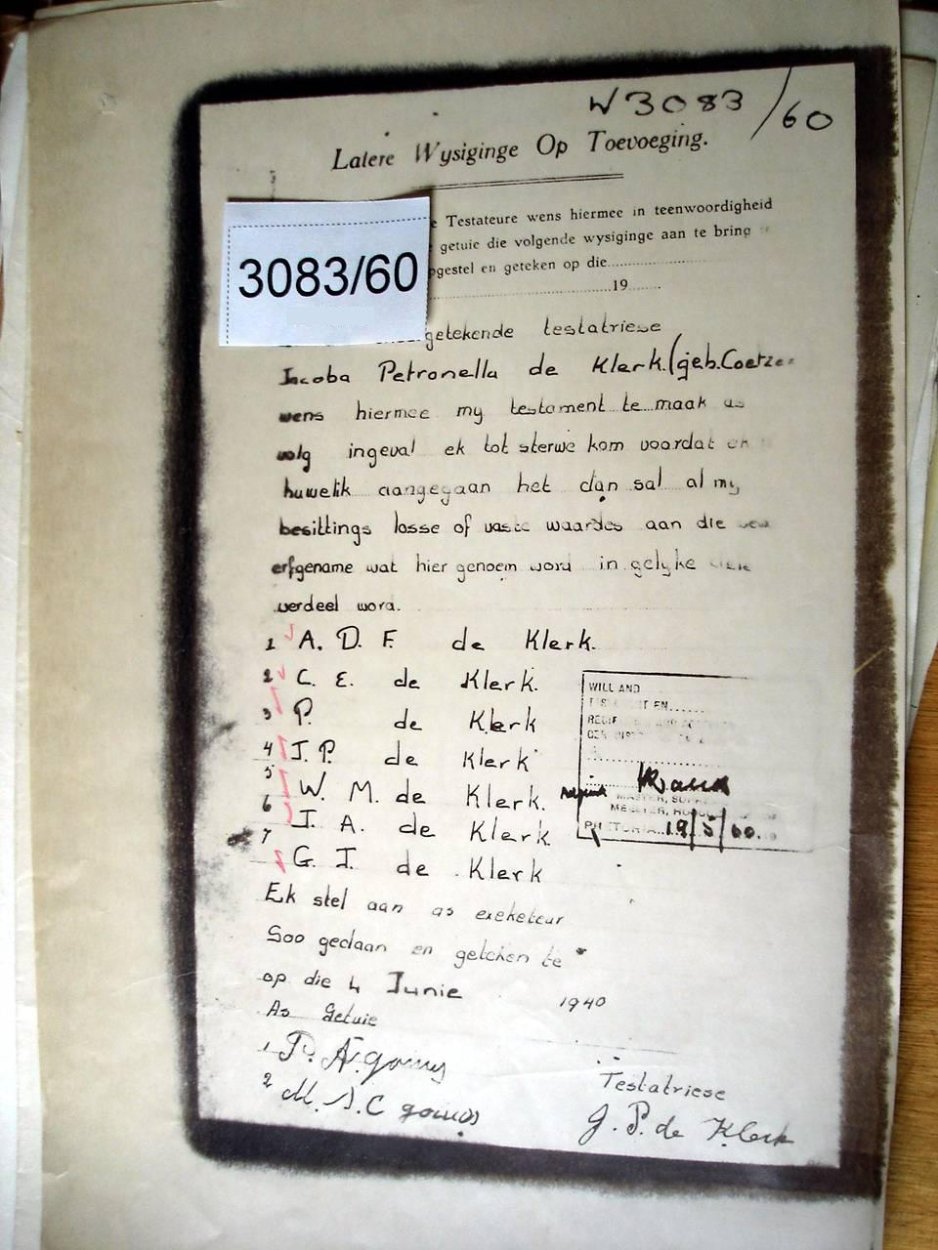 W 3083/60
Latere Wysiginge Op Toevoeging.
3083/60
Testateure wens hiermee in teenwoordigheid
getuie die volgende wysiginge aan te bring
en geteken op die
19
testatriese
Jacoba Petronella de Klerk. (geb. Coetze
wens hiermee my testament te maak as
volg ingeval ek tot sterwe kom voordat ek
huwelik aangegaan het dan sal al my
besittings losse of vaste waardes aan die
erfgename wat hier genoem word in gelyke
verdeel word.
1 A. D. F. de Klerk.
2 C. E. de Klerk.
3 P. de Klerk
4 J. P. de Klerk
5 W. M. de Klerk.
6 J. A. de Klerk
7 G. J. de Klerk
WILL AND
MASTER,
PRETORIA 19/5/60.
Ek stel aan as exekuteur
Soo gedaan en geteken te
op die 4 Junie 1940
As Getuie
1
2
Testatriese
J. P. de Klerk